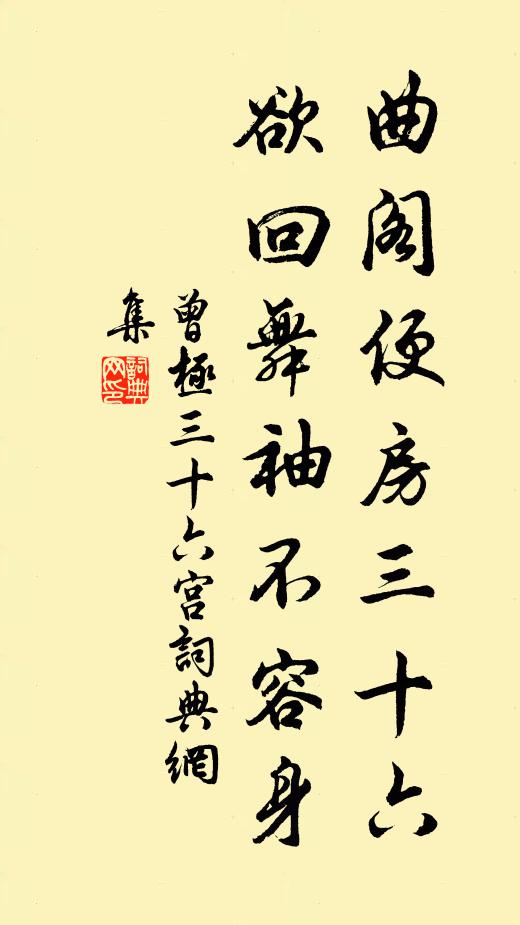 曲阁便房三十六
欲回舞袖不容身
曾極三十六宫詞典網
集
詞典
网印